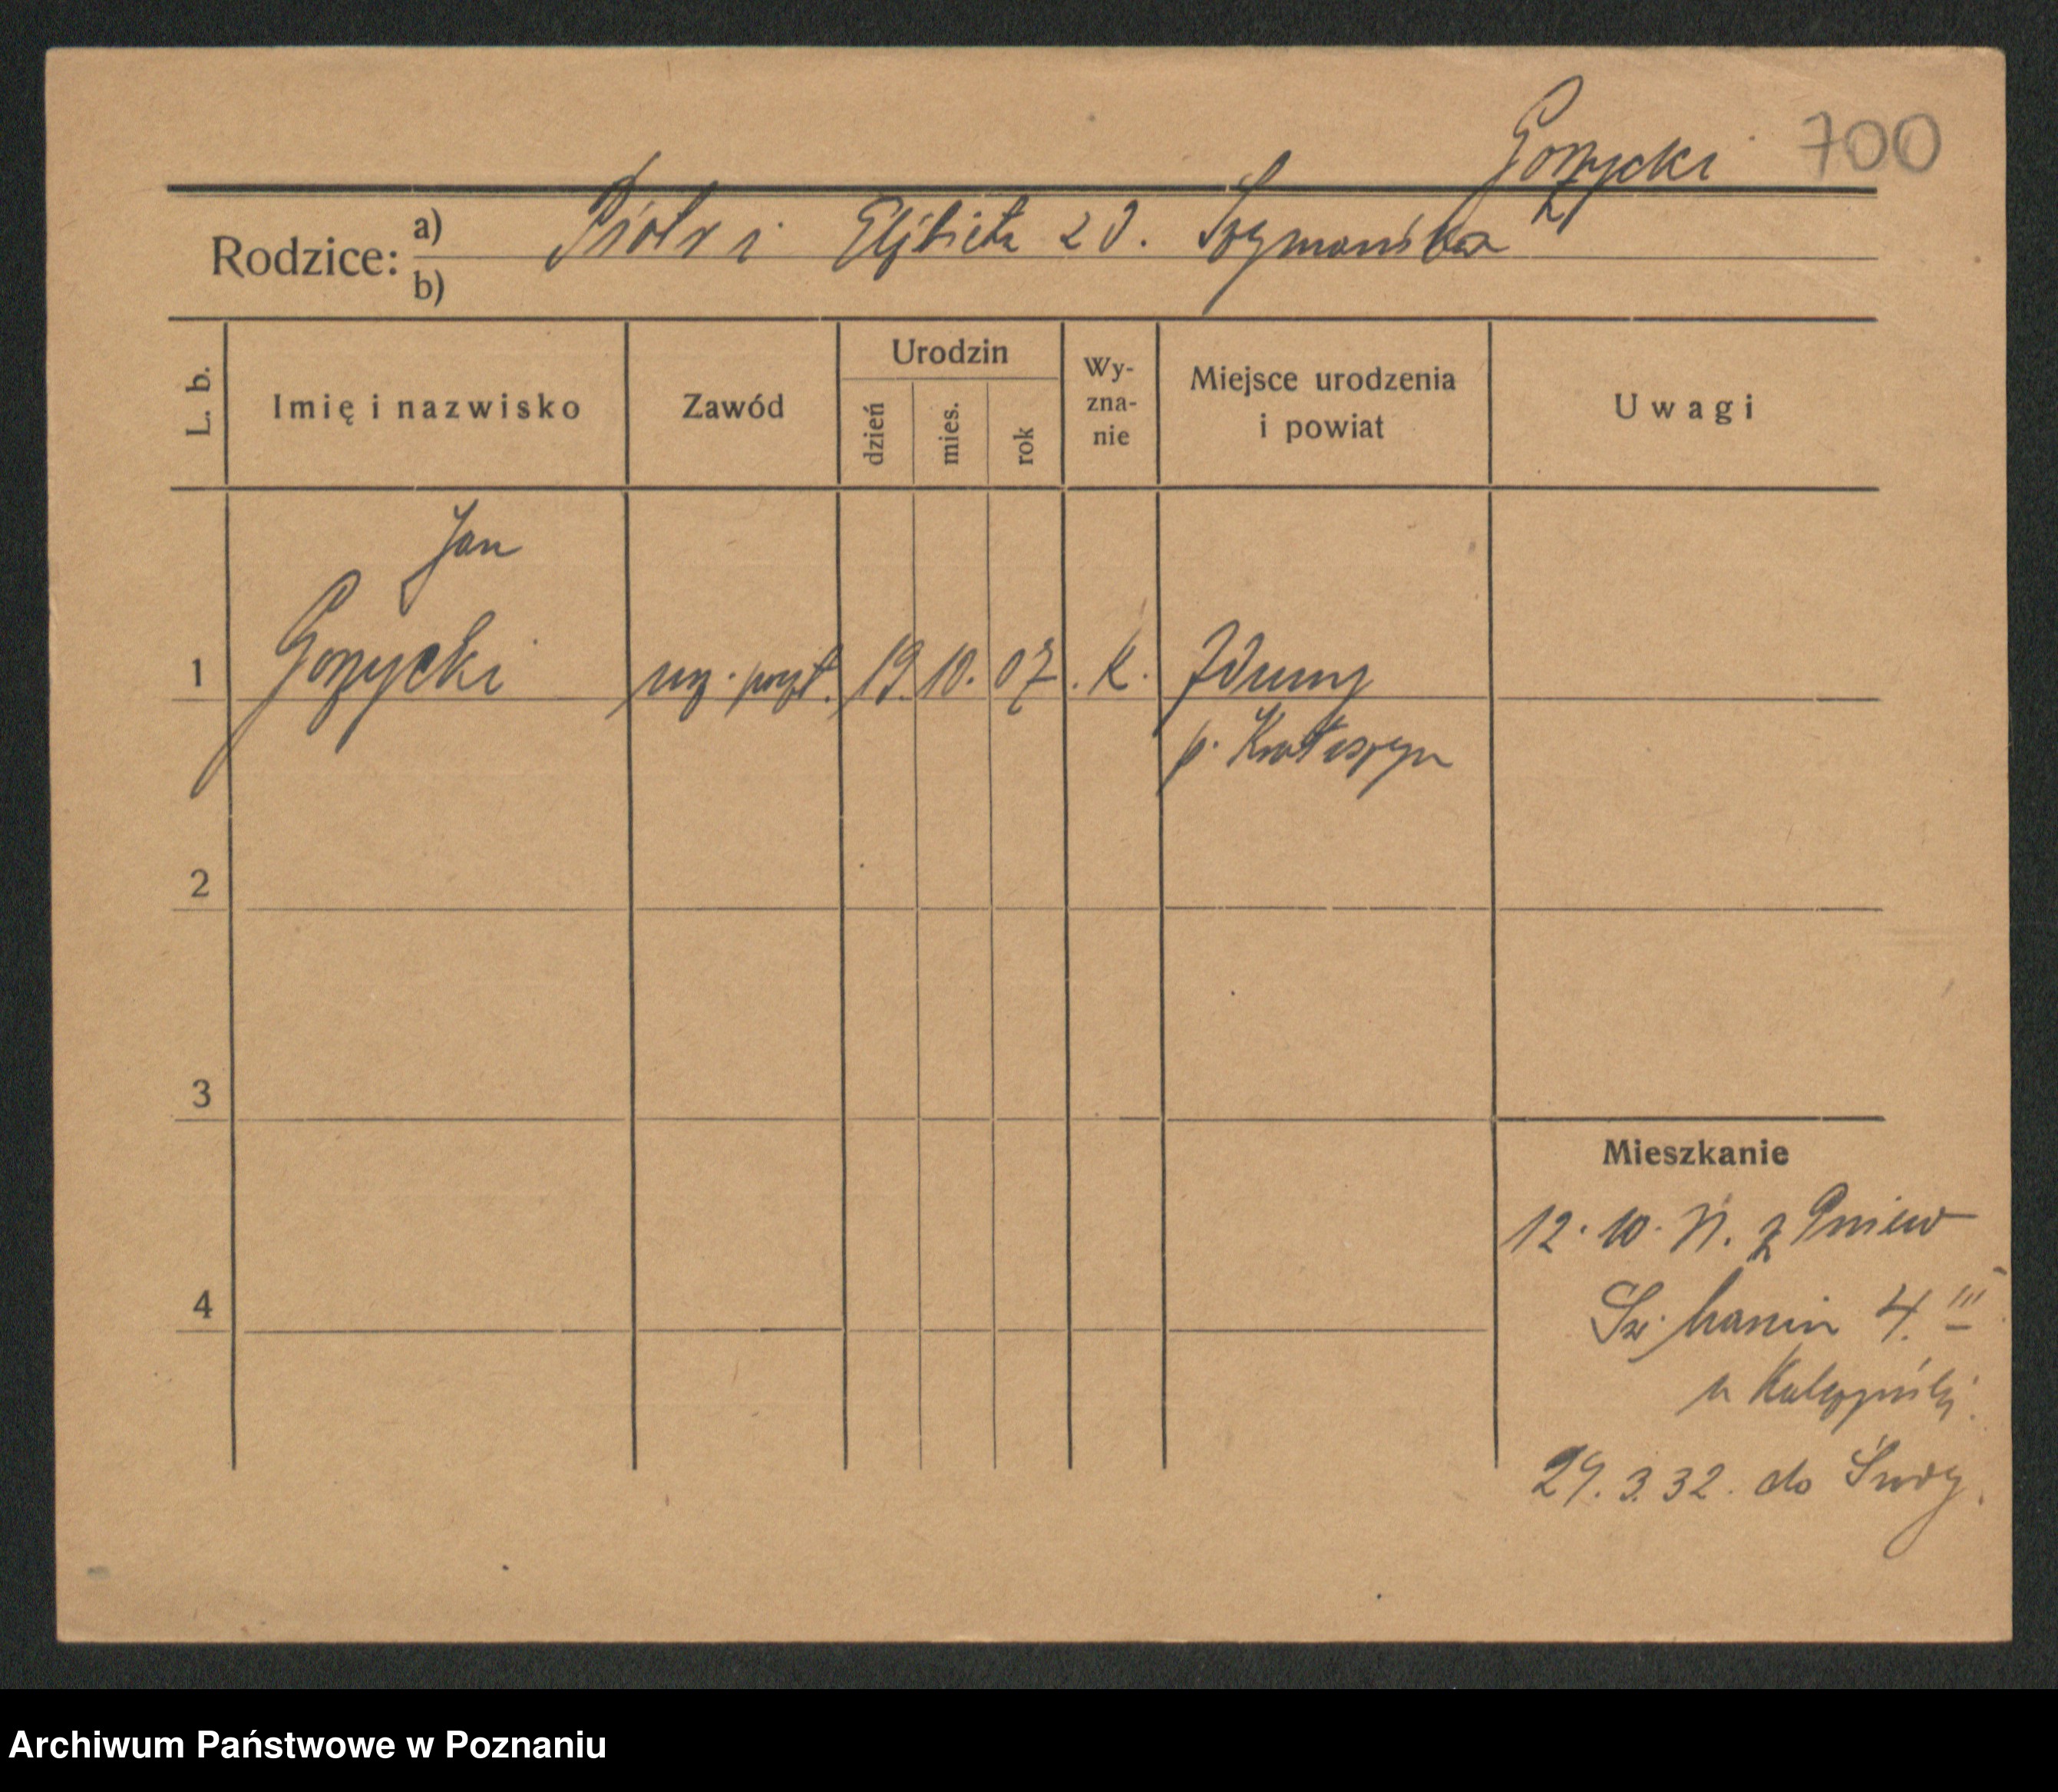 Gorzycki 700
Rodzice: a) Piotr i Elżbieta z d. Szymańska
b)
L. b. Imię i nazwisko Zawód Urodzin dzień mies. rok Wy-zna-nie Miejsce urodzenia i powiat Uwagi
Jan
1 Gorzycki urz. poczt. 19. 10. 07. k. Zduny
p. Krotoszyn
2
3
Mieszkanie
12. 10. z Pniew
4 Św. 4. III
u
29. 3. 32. do Środy.
Archiwum Państwowe w Poznaniu